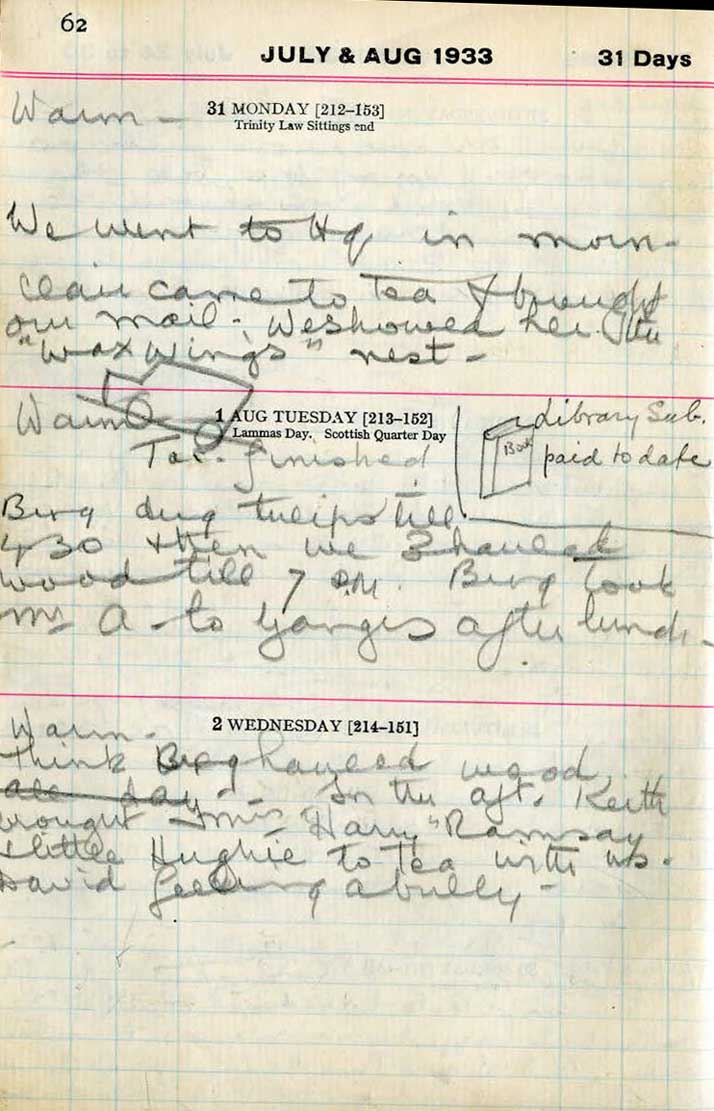 62
JULY & AUG 1933 31 Days
31 MONDAY [212–153]
Trinity Law Sittings end
Warm –
We went to Hq in morn –
Clair came to Tea & brought
our mail – We showed her the
"Wax Wings" nest –
1 AUG TUESDAY [213–152]
Lammas Day. Scottish Quarter Day
Warm
finished
Book
Library Sub.
paid to date
Berg dug tulips till
4 30 & then we hauled
wood till 7 P.M. Berg took
Mrs A – to Ganges after lunch –
2 WEDNESDAY [214–151]
Warm –
think Berg hauled wood
all day – In the aft. Keith
brought Mrs "Harry" Ramsay
& little Hughie to Tea with us.
David feeling a bully –